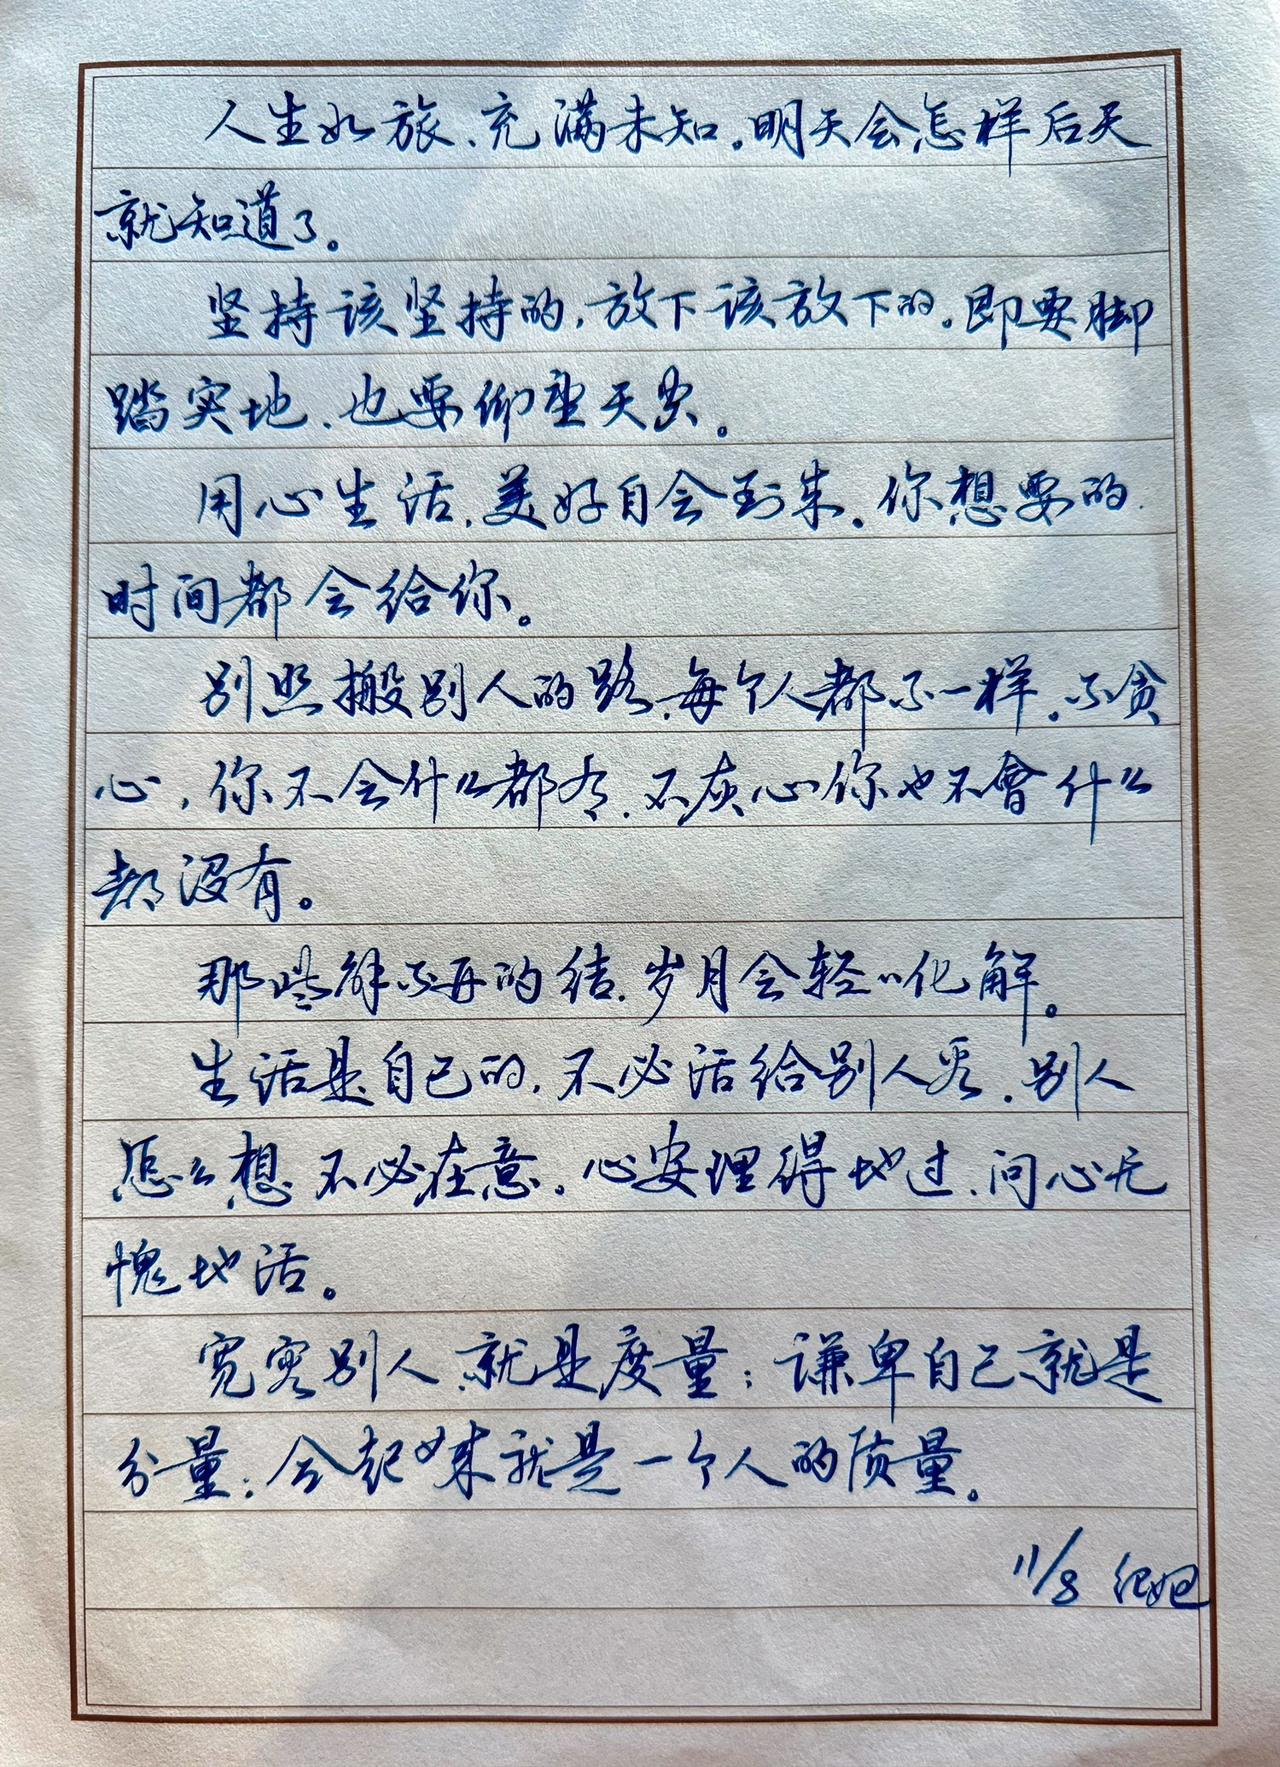 人生如旅、充满未知。明天会怎样后天
就知道了。
坚持该坚持的,放下该放下的。即要脚
踏实地、也要仰望天空。
用心生活,美好自会到来。你想要的
时间都会给你。
别照搬别人的路,每个人都不一样。不贪
心,你不会什么都有、不灰心你也不會什么
都没有。
那些解不开的结、岁月会轻轻化解。
生活是自己的,不必活给别人看、别人
怎么想 不必在意。心安理得地过、问心无
愧地活。
宽容别人、就是度量;谦卑自己就是
分量;合起来就是一个人的质量。
11/8